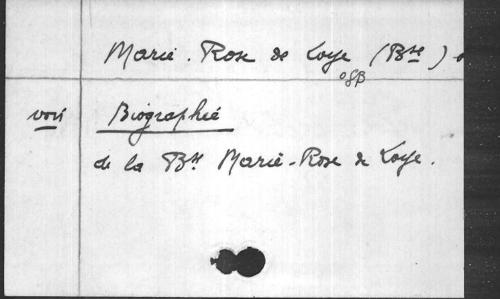 Marie-Rose de Loye (Bse)
OSB
voir Biographie
de la Bse Marie-Rose de Loye.